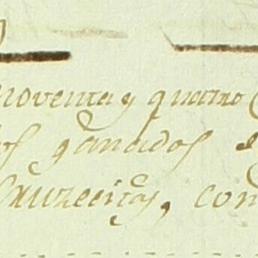 noventa y quatro
os ganados
Cruzecitas, con